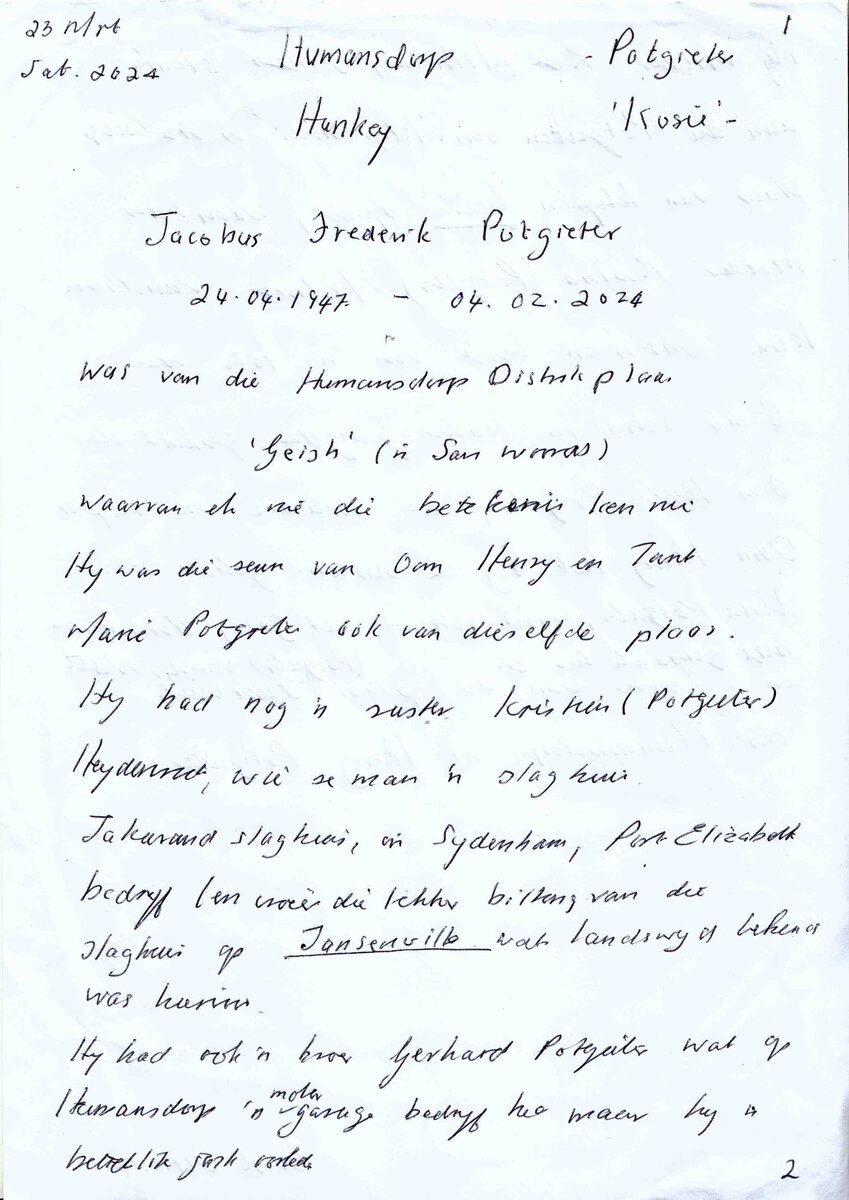 23 Mrt
Sat. 2024
1
Humansdorp - Potgieter
Hankey 'Kosie' -
Jacobus Frederik Potgieter
24.04.1947 - 04.02.2024
Was van die Humansdorp Distrik plaas
'Geish' ('n San woord)
waarvan ek nie die betekenis ken nie
Hy was die seun van Oom Henry en Tant
Marié Potgieter ook van dieselfde plaas.
Hy had nog 'n suster Kristien (Potgieter)
Heydenrech, wie se man 'n slaghuis
Jakarand slaghuis, in Sydenham, Port Elizabeth
bedryf (en vroeër die lekker biltong van die
slaghuis op Jansenville wat landswyd bekend
was
Hy had ook 'n broer Gerhard Potgieter wat op
Humansdorp 'n motor garage bedryf het maar hy is
betreklik jonk oorlede
2